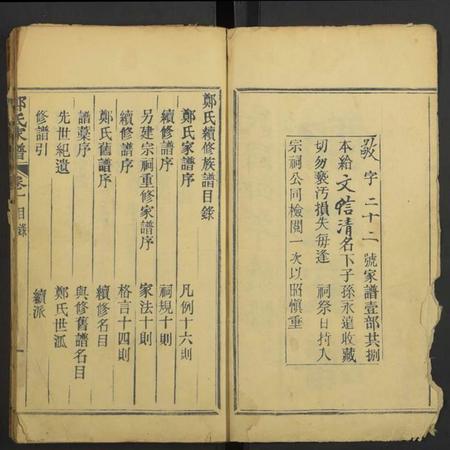 敬字二十二號家譜壹部共捌
本給文皓清名下子孫永遠收藏
切勿褻污損失每逢 祠祭日持入
宗祠公同檢閱一次以昭慎重
鄭氏續修族譜目錄
鄭氏家譜序 凡例十六則
續修譜序 祠規十則
另建宗祠重修家譜序 家法十則
續修譜序 格言十四則
鄭氏舊譜序 續修名目
譜藁序 與修舊譜名目
先世紀遺 鄭氏世派
修譜引 續派
鄭氏家譜 卷一目錄